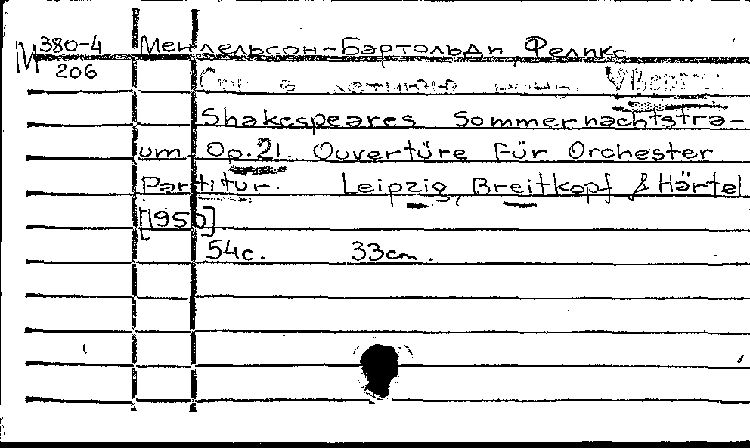 М 380-4 Мендельсон-Бартольди, Феликс
206
Сон в летнюю ночь.
Shakespeares Sommernachtstra-
um Op.21. Ouvertüre für Orchester
Partitur. Leipzig, Breitkopf & Härtel
[1950]
54с. 33cm.